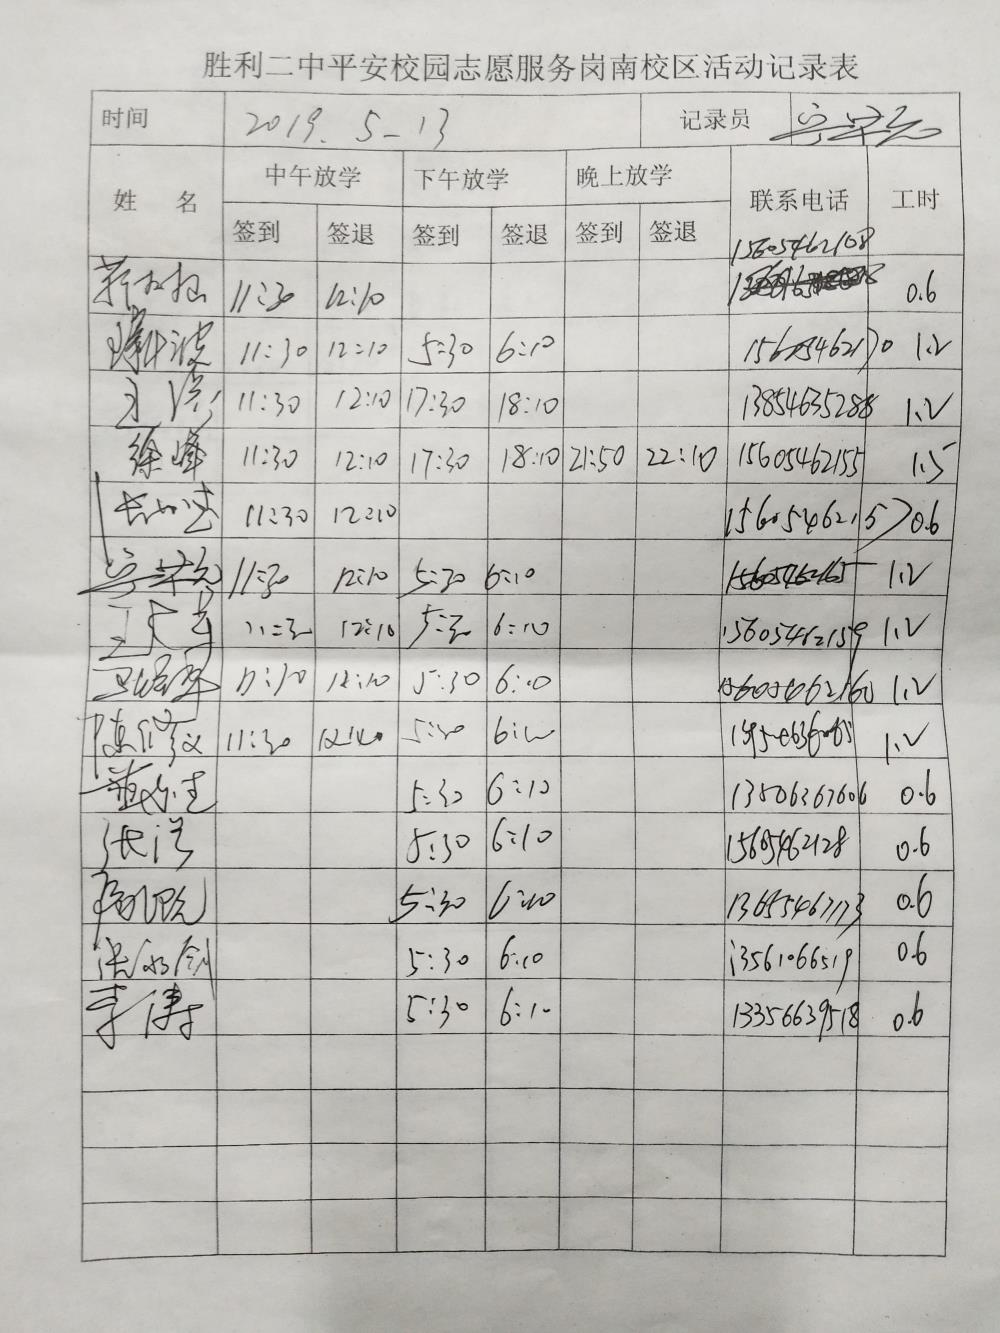 胜利二中平安校园志愿服务岗南校区活动记录表
时间 2019. 5-13 记录员
姓 名 中午放学 下午放学 晚上放学 联系电话 工时
签到 签退 签到 签退 签到 签退
15605462108
11:30 12:10 0.6
11:30 12:10 5:30 6:10 15605462170 1.2
王 11:30 12:10 17:30 18:10 13854635288 1.2
徐峰 11:30 12:10 17:30 18:10 21:50 22:10 15605462155 1.5
11:30 12:10 0.6
11:30 12:10 5:30 6:10 15605462165 1.2
11:30 12:10 5:30 6:10 15605462159 1.2
11:30 12:10 5:30 6:10 15605462160 1.2
陈 11:30 5:30 1.2
5:30 6:10 13506367606 0.6
张洋 5:30 6:10 15605462128 0.6
5:30 6:10 0.6
5:30 6:10 13561066519 0.6
李涛 5:30 6:10 13356639518 0.6